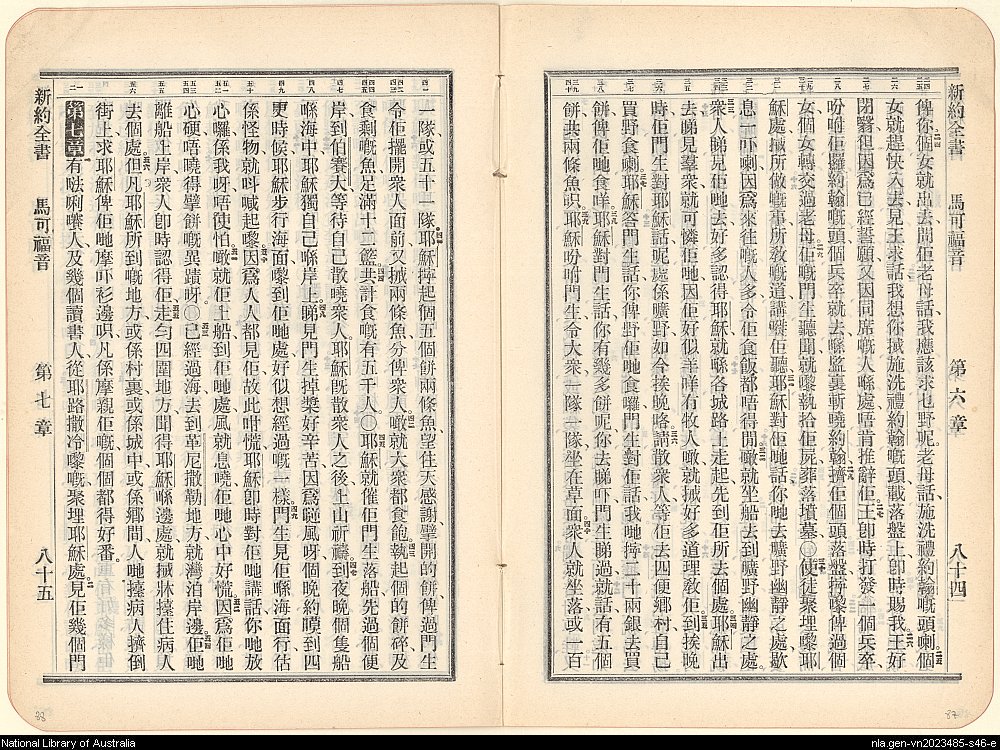 新約全書 馬可福音 第六章 八十四
俾你個女就出去問佢老母話我應該求乜野呢老母話施洗禮約翰嘅頭喇個
女就趕快入去見王求話我想你搣施洗禮約翰嘅頭載落盤上卽時賜我王好
閉翳但因爲已經誓願又因同席嘅人喺處唔肯推辭佢王卽時打發一個兵卒、
吩咐佢攞約翰嘅頭個兵卒就去喺監裏斬曉約翰擠佢個頭落盤擰嚟俾過個
女、個女轉交過老母佢嘅門生聽聞就嚟執拾佢屍葬落墳墓〇使徒衆埋嚟耶
穌處搣所做嘅事所敎嘅道講嚹佢聽耶穌對佢哋話你哋去曠野幽靜之處歇
息一吓喇因爲來往嘅人多令佢食飯都唔得閒噉就坐船去到曠野幽靜之處。
衆人睇見佢哋去好多認得耶穌就喺各城路上走起先到佢所去個處耶穌出
去睇見羣衆就可憐佢哋因佢好似羊咩冇牧人嘅就搣好多道理敎佢到挨晚
時佢門生對耶穌話呢處係曠野如今挨晚咯請散衆人等佢去四便鄉村自己
買野食喇耶穌答門生話你俾野佢哋食囉門生對佢話我哋擰二十兩銀去買
餅俾佢哋食咩耶穌對門生話你有幾多餅呢你去睇吓門生睇過就話有五個
餅共兩條魚呮耶穌吩咐門生令大衆一隊一隊坐在草面衆人就坐落或一百
新約全書 馬可福音 第七章 八十五
一隊、或五十一隊耶穌擰起個五個餅兩條魚望住天感謝擘開的餅俾過門生
令佢擺開衆人面前又搣兩條魚分俾衆人噉就大衆都食飽執起個的餅碎及
食剩嘅魚足滿十二籃共計食嘅有五千人〇耶穌就催佢門生落船先過個便
岸到伯賽大等待自己散曉衆人。耶穌旣散衆人之後上山祈禱。到夜晚個隻船
喺海中耶穌獨自己喺岸上睇見門生掉槳好辛苦因爲碰風呀個晚約嘆到四
更時候耶穌步行海面嚟到佢哋處好似想經過嘅一樣。門生見佢喺海面行估
係怪物就呌喊起嚟因爲人人都見佢故此咁慌耶穌卽時對佢哋講話你哋放
心囉係我呀唔使怕噉就佢上船到佢哋處風就息曉佢哋心中好慌因爲佢哋
心硬唔曉得擘餅嘅異蹟呀〇已經過海去到革尼撒勒地方就灣泊岸邊佢哋
離船上岸衆人卽時認得佢走勻四圍地方聞得耶穌喺邊處就搣牀擡住病人
去個處但凡耶穌所到嘅地方或係村裏或係城中或係鄉間人哋擡病人擠倒
街上求耶穌俾佢哋摩吓衫邊呮凡係摩親佢嘅個個都得好番。
第七章 有㕸唎嚽人及幾個讀書人從耶路撒冷嚟嘅聚埋耶穌處見佢幾個門
88
87
National Library of Australia
nla.gen-vn2023485-s46-e